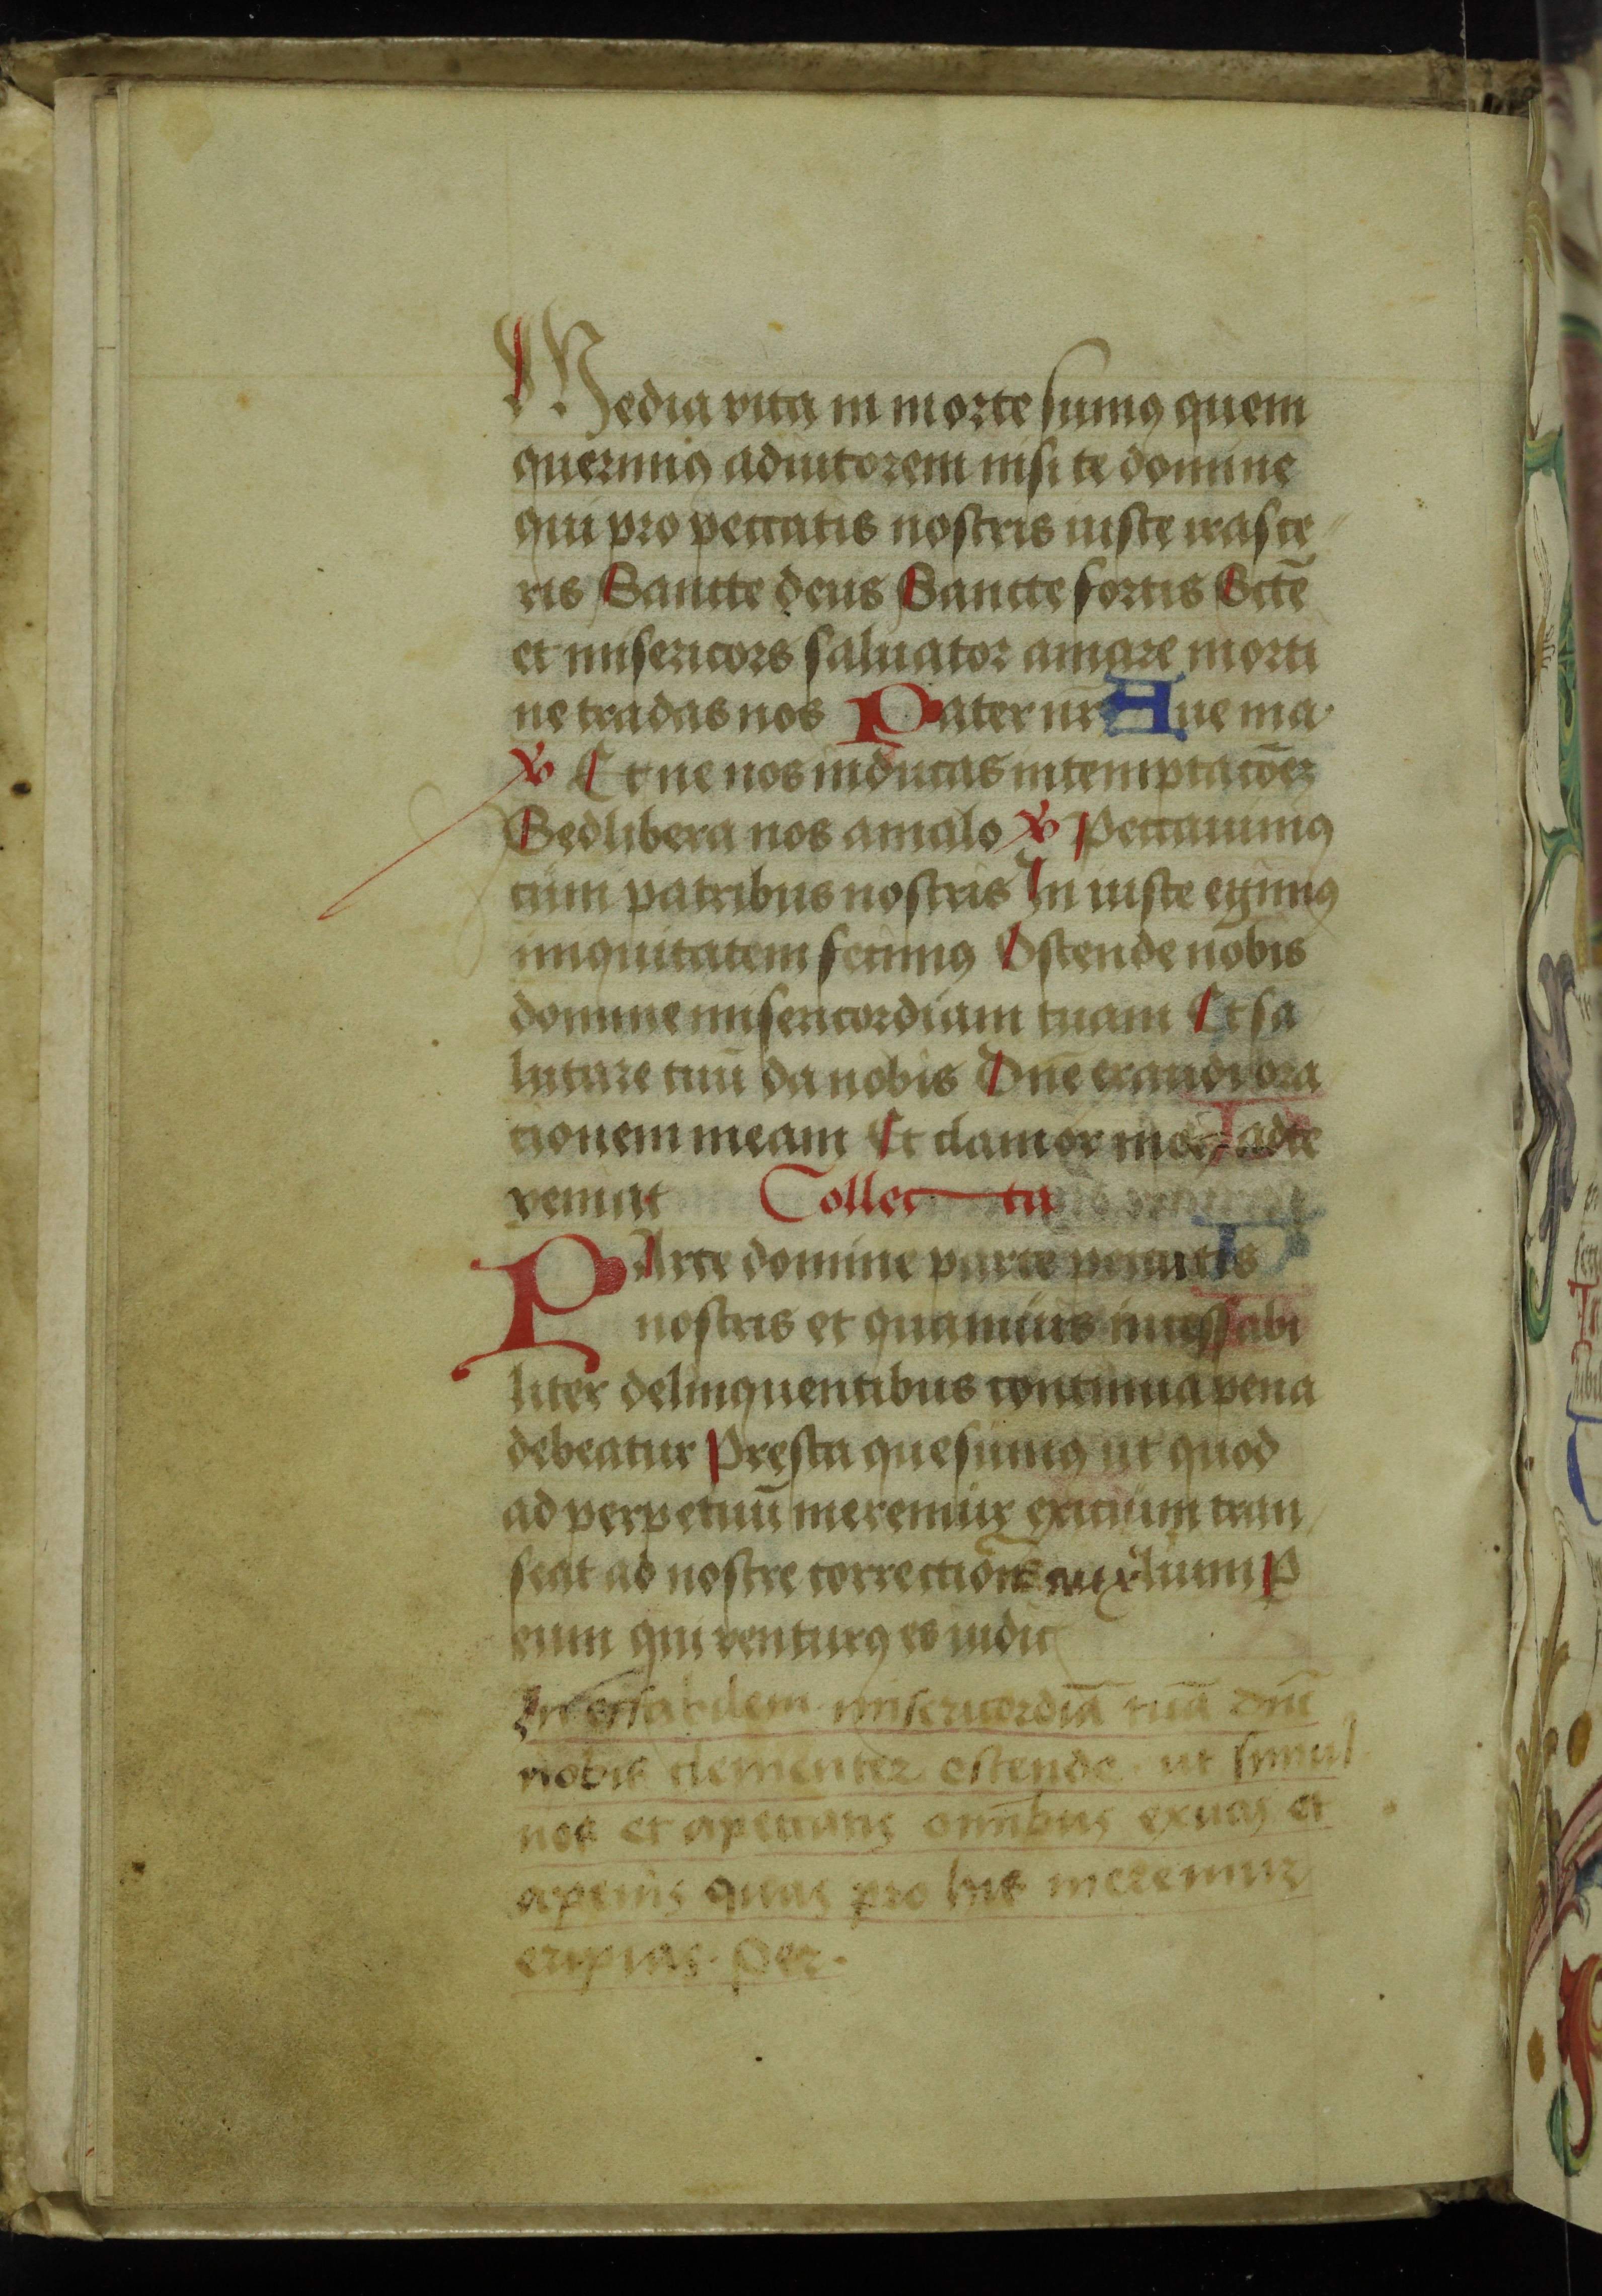 Media vita in morte sumꝯ quem
querimꝯ adiutorem nisi te domine
qui pro peccatis nostris iuste irasce
ris Sancte deus Sancte fortis Sctē
et misericors saluator amare morti
ne tradas nos Pater nr̄ Aue ma
℣ Et ne nos inducas in temptacōeꝫ
Sed libera nos a malo ℣ Peccauimꝯ
cum patribus nostris In iuste egimꝯ
iniquitatem fecimꝯ Ostende nobis
domine misericordiam tuam Et sa
lutare tuū da nobis Dn̄e exaudi ora
tionem meam Et clamor meꝯ ad te
veniat Collecta
PArce domine parce peccatis
nostris et quamuis incessabi
liter delinquentibus continua pena
debeatur Presta quesumꝯ ut quod
ad perpetuū meremur exitium tran
seat ad nostre correctiōis auxilium P
eum qui venturꝯ es iudic
Ineffabilem misericordiā tuā dn̄e
nobis clementer ostende · ut simul
nos et a peccatis omībus exuas et
a penis quas pro his meremur
eripias · Per ·